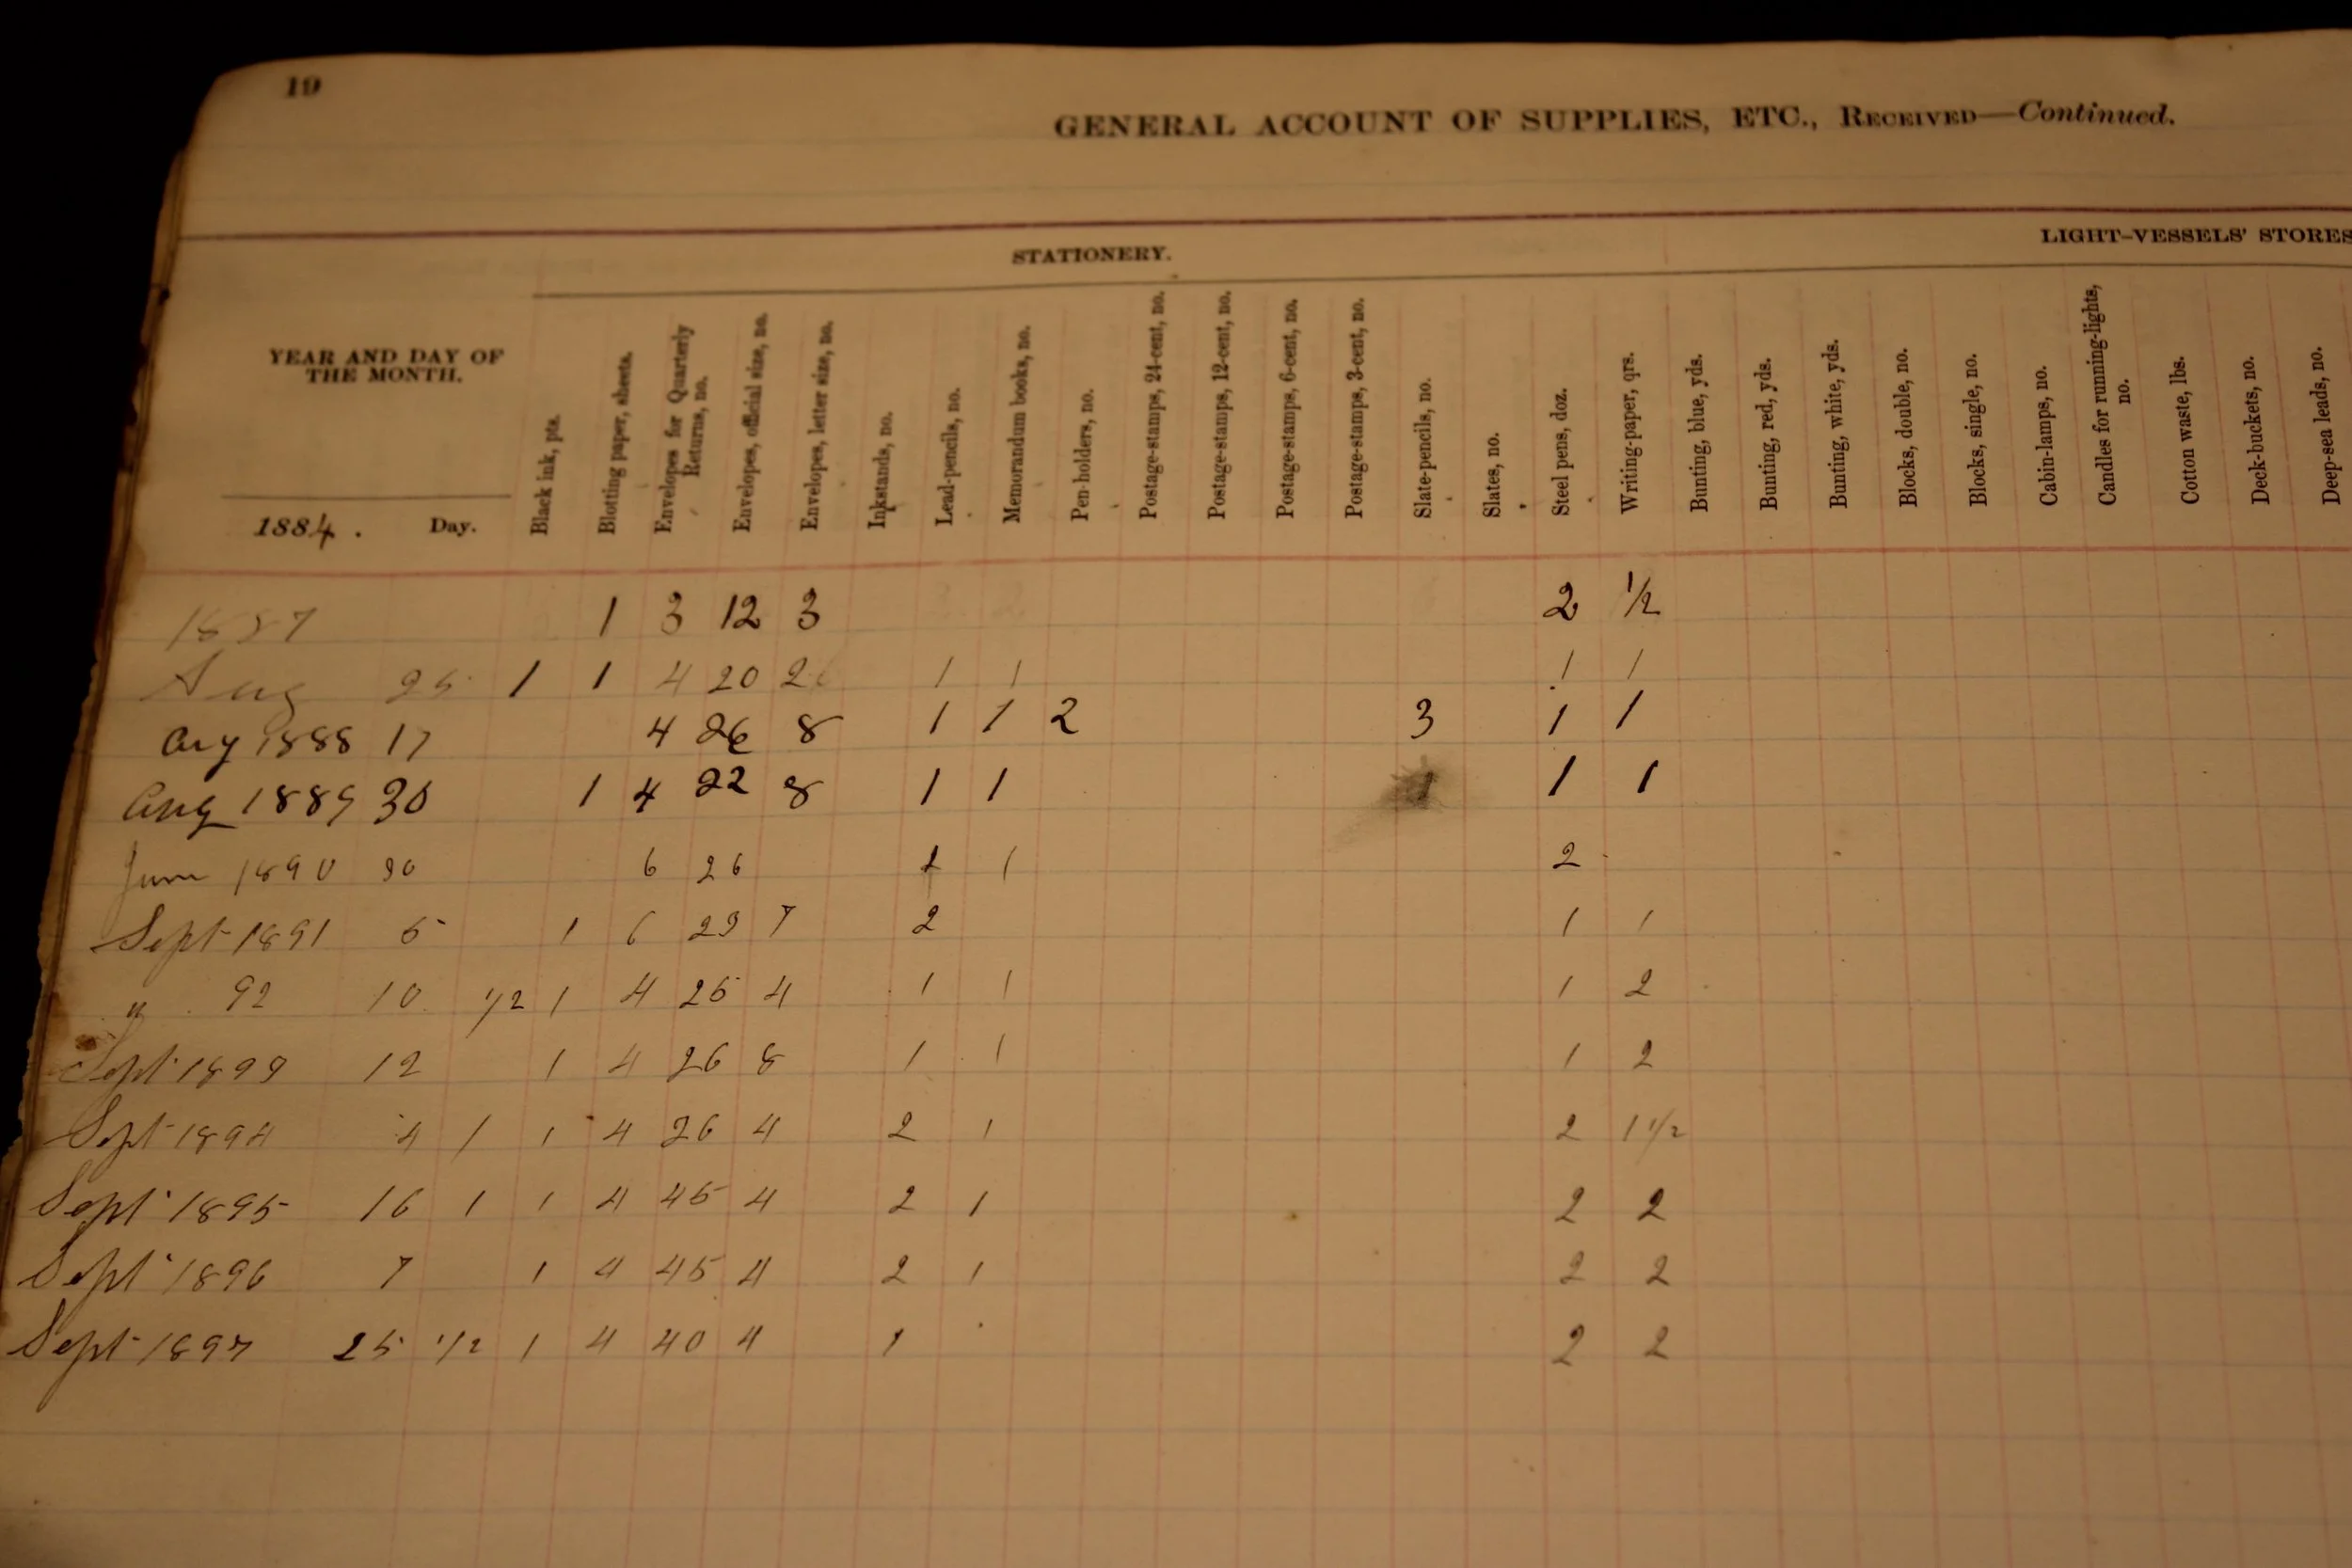 19
GENERAL ACCOUNT OF SUPPLIES, ETC., RECEIVED—Continued.
STATIONERY.
LIGHT-VESSELS' STORES
YEAR AND DAY OF
THE MONTH.
1884. Day.
Black ink, pts.
Blotting paper, sheets.
Envelopes for Quarterly
Returns, no.
Envelopes, official size, no.
Envelopes, letter size, no.
Inkstands, no.
Lead-pencils, no.
Memorandum books, no.
Pen-holders, no.
Postage-stamps, 24-cent, no.
Postage-stamps, 12-cent, no.
Postage-stamps, 6-cent, no.
Postage-stamps, 3-cent, no.
Slate-pencils, no.
Slates, no.
Steel pens, doz.
Writing-paper, qrs.
Bunting, blue, yds.
Bunting, red, yds.
Bunting, white, yds.
Blocks, double, no.
Blocks, single, no.
Cabin-lamps, no.
Candles for running-lights,
no.
Cotton waste, lbs.
Deck-buckets, no.
Deep-sea leads, no.
1887 1 3 12 3 2 1/2
Aug 25 1 1 4 20 1 1 1 1
Aug 1888 17 4 26 8 1 1 2 3 1 1
Aug 1889 30 1 4 22 8 1 1 1 1 1
June 1890 30 6 26 1 1 2
Sept 1891 5 1 6 23 7 2 1 1
" 92 10 1/2 1 4 25 4 1 1 1 2
Sept 1893 12 1 4 26 8 1 1 1 2
Sept 1894 4 1 1 4 26 4 2 1 2 1 1/2
Sept 1895 16 1 1 4 45 4 2 1 2 2
Sept 1896 7 1 4 45 4 2 1 2 2
Sept 1897 25 1/2 1 4 40 4 1 2 2